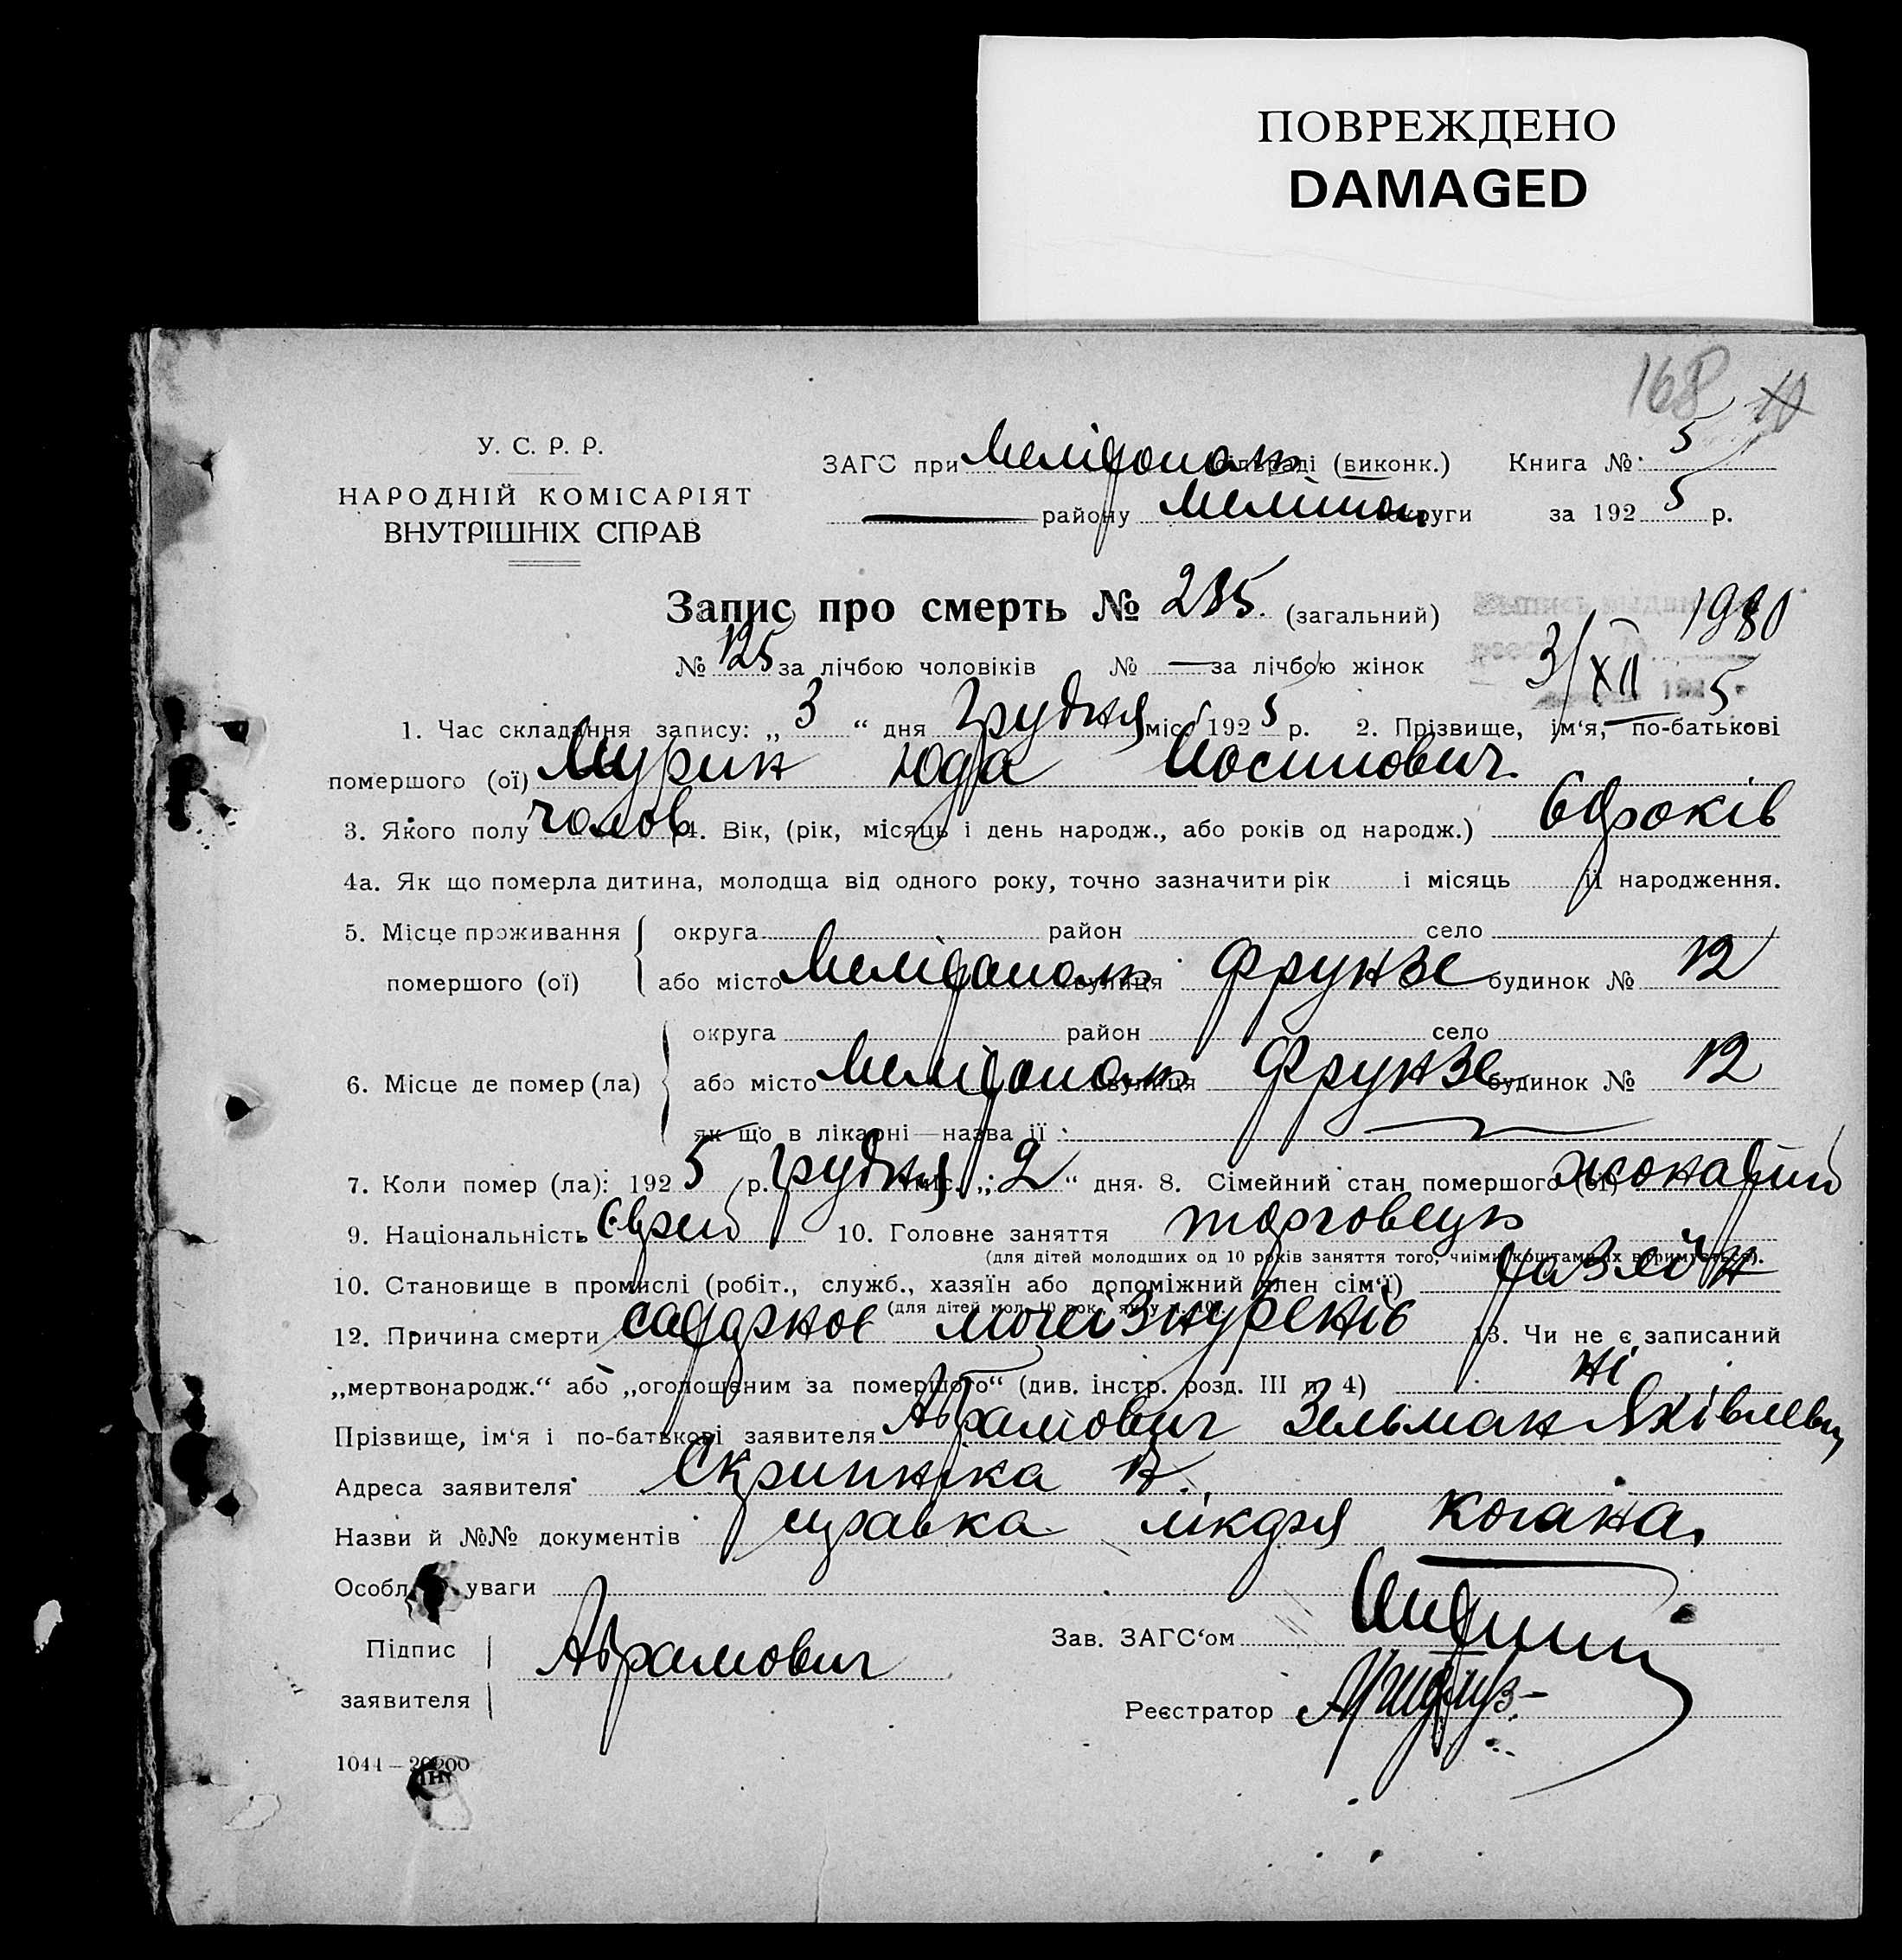 ПОВРЕЖДЕНО
DAMAGED
168 10
У. С. Р. Р.
НАРОДНІЙ КОМІСАРІЯТ
ВНУТРІШНІХ СПРАВ
ЗАГС при Мелітополь сільраді (виконк.) Книга № 5
району Меліпол округи за 1925 р.
Запис про смерть № 235 (загальний)
1980
№ 125 за лічбою чоловіків № — за лічбою жінок
3/XII 1925
1. Час складання запису: „ 3 “ дня Грудня міс. 1925 р. 2. Прізвище, ім‘я, по-батькові
помершого (ої) Мурин Юда Иосипович
3. Якого полу чолов 4. Вік, (рік, місяць і день народж., або років од народж.) 69 років
4а. Як що померла дитина, молодща від одного року, точно зазначити рік і місяць її народження.
5. Місце проживання помершого (ої)
округа район село
або місто Мелітополь вулиця Фрунзе будинок № 12
6. Місце де помер (ла)
округа район село
або місто Мелітополь вулиця Фрунзе будинок № 12
як що в лікарні — назва її
7. Коли помер (ла): 1925 р. Грудня міс. „ 2 “ дня. 8. Сімейний стан помершого (ої) жонатий
9. Національність Єврей 10. Головне заняття торговець
(для дітей молодших од 10 років заняття того, чиїми коштами їх втримується).
10. Становище в промислі (робіт., служб., хазяїн або допоміжний член сім‘ї) хазяїн
(для дітей мол. 10 рок., як у п. 10).
12. Причина смерти 13. Чи не є записаний
„мертвонародж.“ або „оголошеним за помершого“ (див. інстр. розд. III п. 4) ні
Прізвище, ім‘я і по-батькові заявителя Абрамович Зельман Яківлевич
Адреса заявителя Скрипніка 12.
Назви й №№ документів справка лікаря Когана
Особл уваги
Підпис заявителя Абрамович
Зав. ЗАГС‘ом
Реєстратор
1044 — 20200